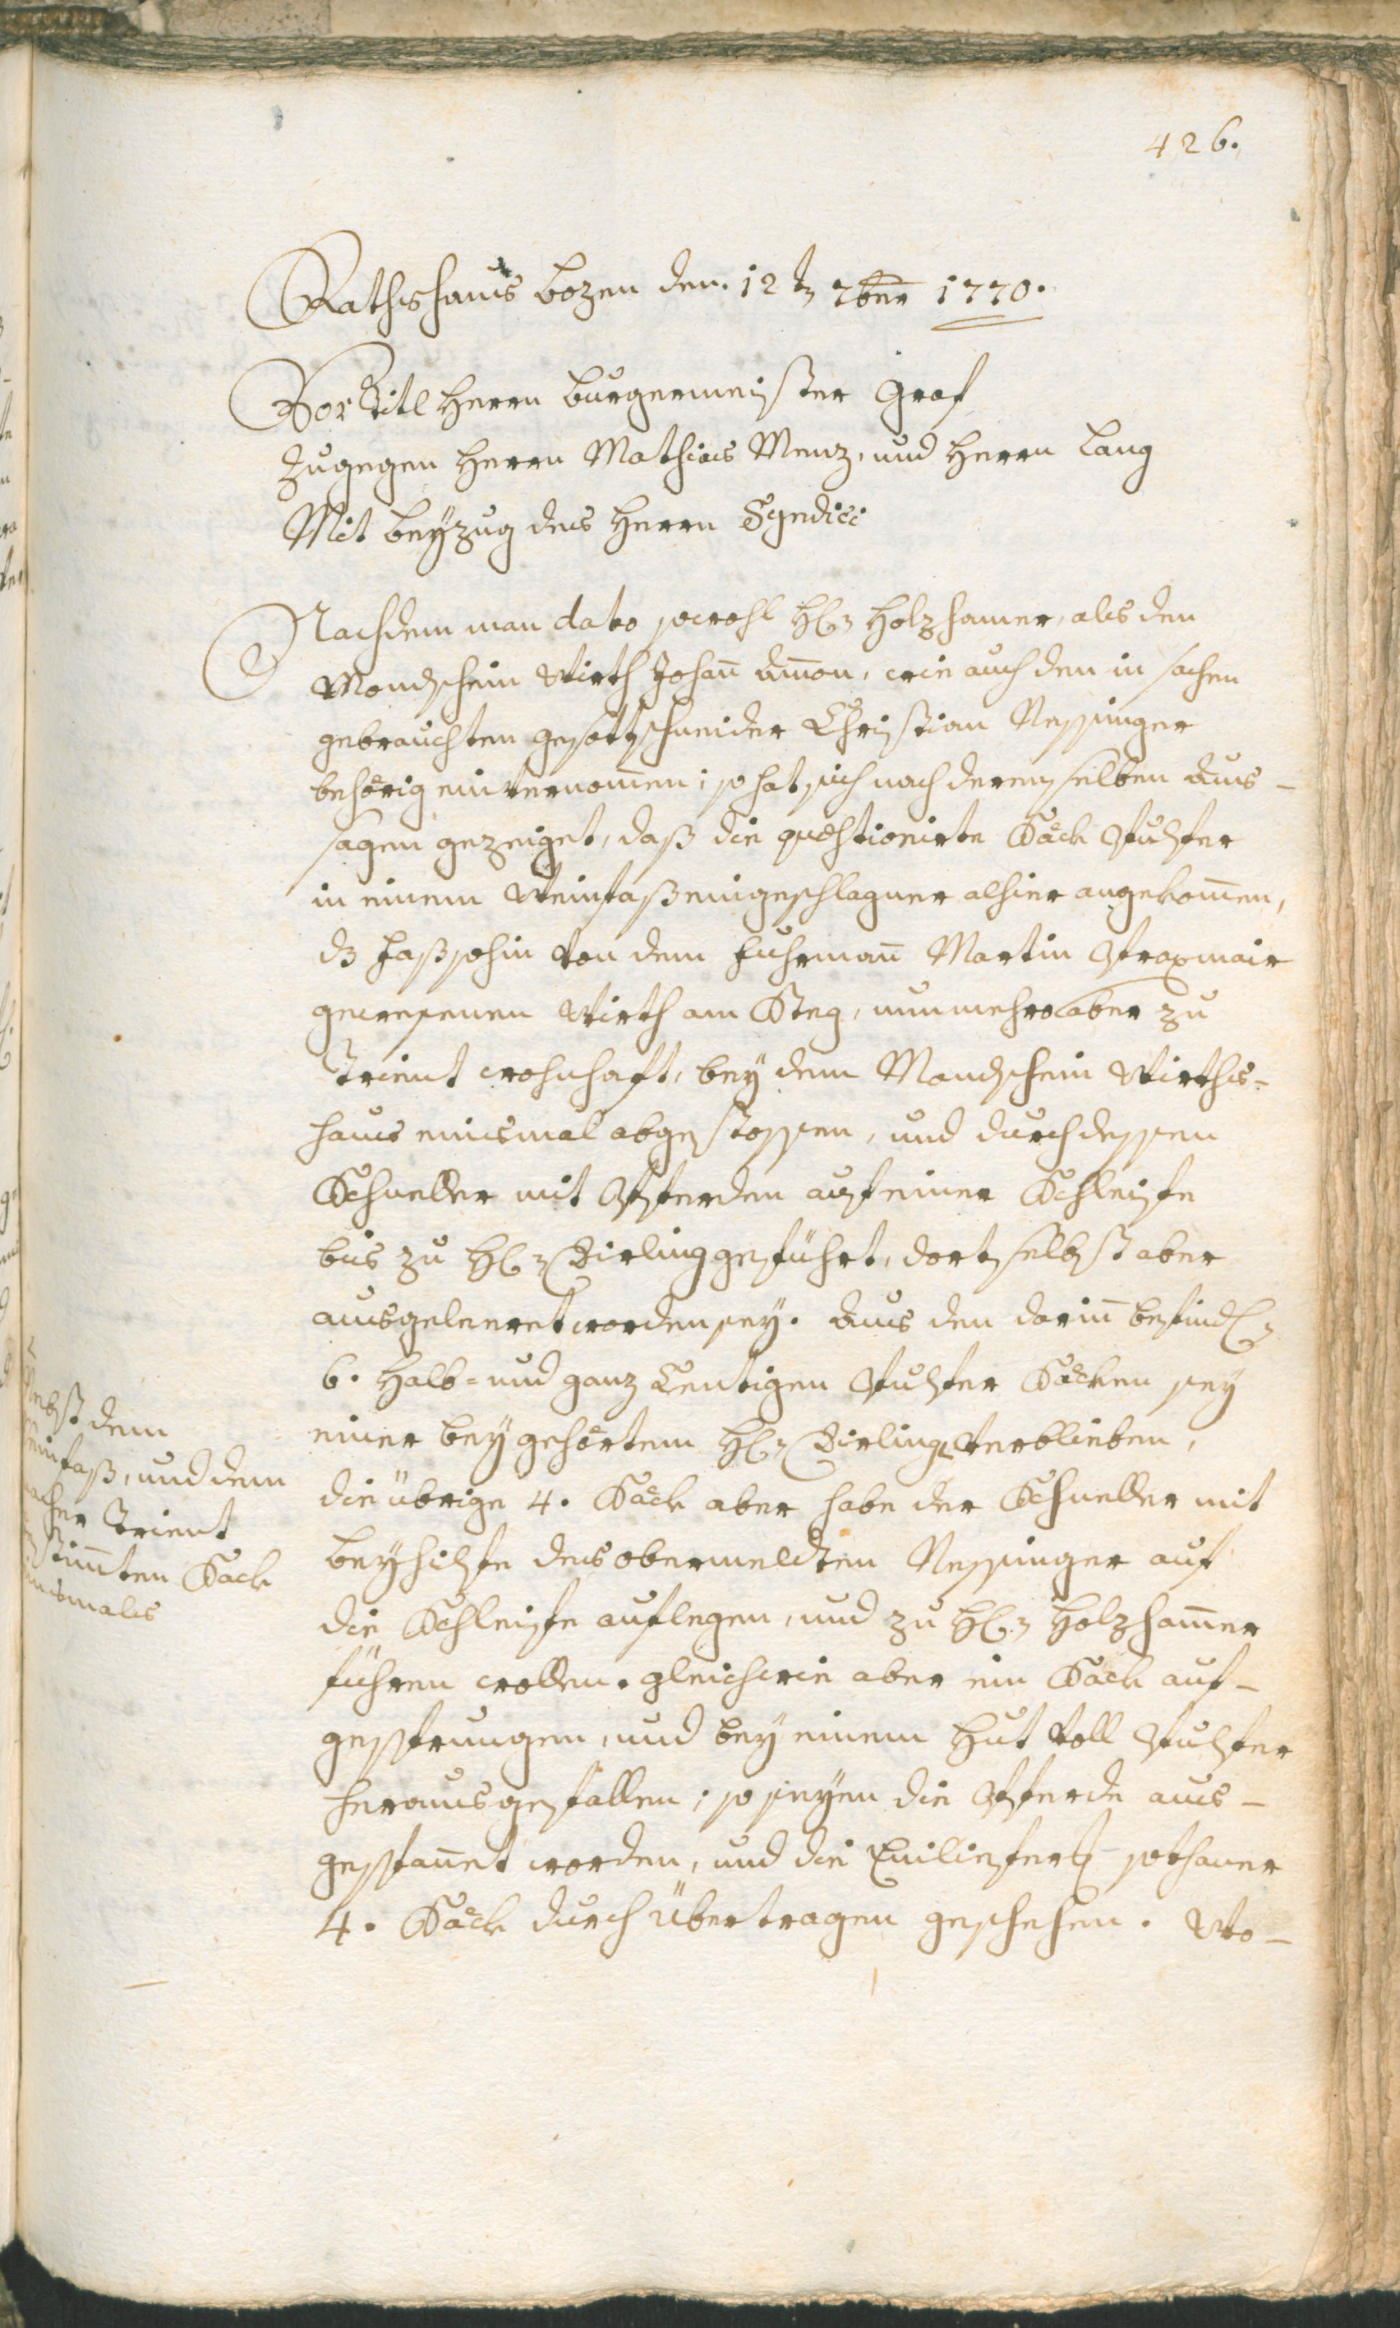 426.
Rathshaus Bozen den. 12 t 7ber 1770.
Vor Titl Herrn Burgermeister Graf
Zugegen Herrn Mathias Menz, und Herrn Lang
Mit Beyzug des Herrn Syndici
Nachdem man dato sowohl H: Holzhamer, als den
Mondschein Wirth Johan̄ Am̄on, wie auch den in sachen
gebrauchten gesottschneider Christian Nessinger
behörig einvernom̄en; so hat sich nach derenselben Aus-
sagen gezeiget, daß die quæstionirte Säck Pulfer
in einem Weinfaß eingeschlagner alhier angekom̄en,
dz Faß sohin von dem Fuhrman̄ Martin Praxmair
gewesenen Wirth am Steg, nunmehro aber zu
Trient wohnhaft, bey dem Mondschein Wirths-
haus einsmal abgestossen, und durch dessen
Schneller mit Pferden auf einer Schleife
bis zu H: Dirling geführt, dortselbst aber
ausgeleeret worden sey. Aus den darin̄ befindl:
6. Halb- und ganz Centigen Pulfer Säcken sey
einer bey gehörtem H: Dirling verblieben,
die übrige 4. Säck aber habe der Schneller mit
Beyhilfe des obermeldten Nessinger auf
die Schleife auflegen, und zu H: Holzham̄er
führen wollen. gleichwie aber ein Säck auf-
gesprungen, und bey einem Hut voll Pulfer
herausgefallen; so seyen die Pferde aus-
gespan̄et worden, und die Einlieferg sothaner
4. Säck durch übertragen geschehen. Wo-
Nebst dem
Weinfaß, und dem
nacher Trient
bestim̄ten Säck
einsmals